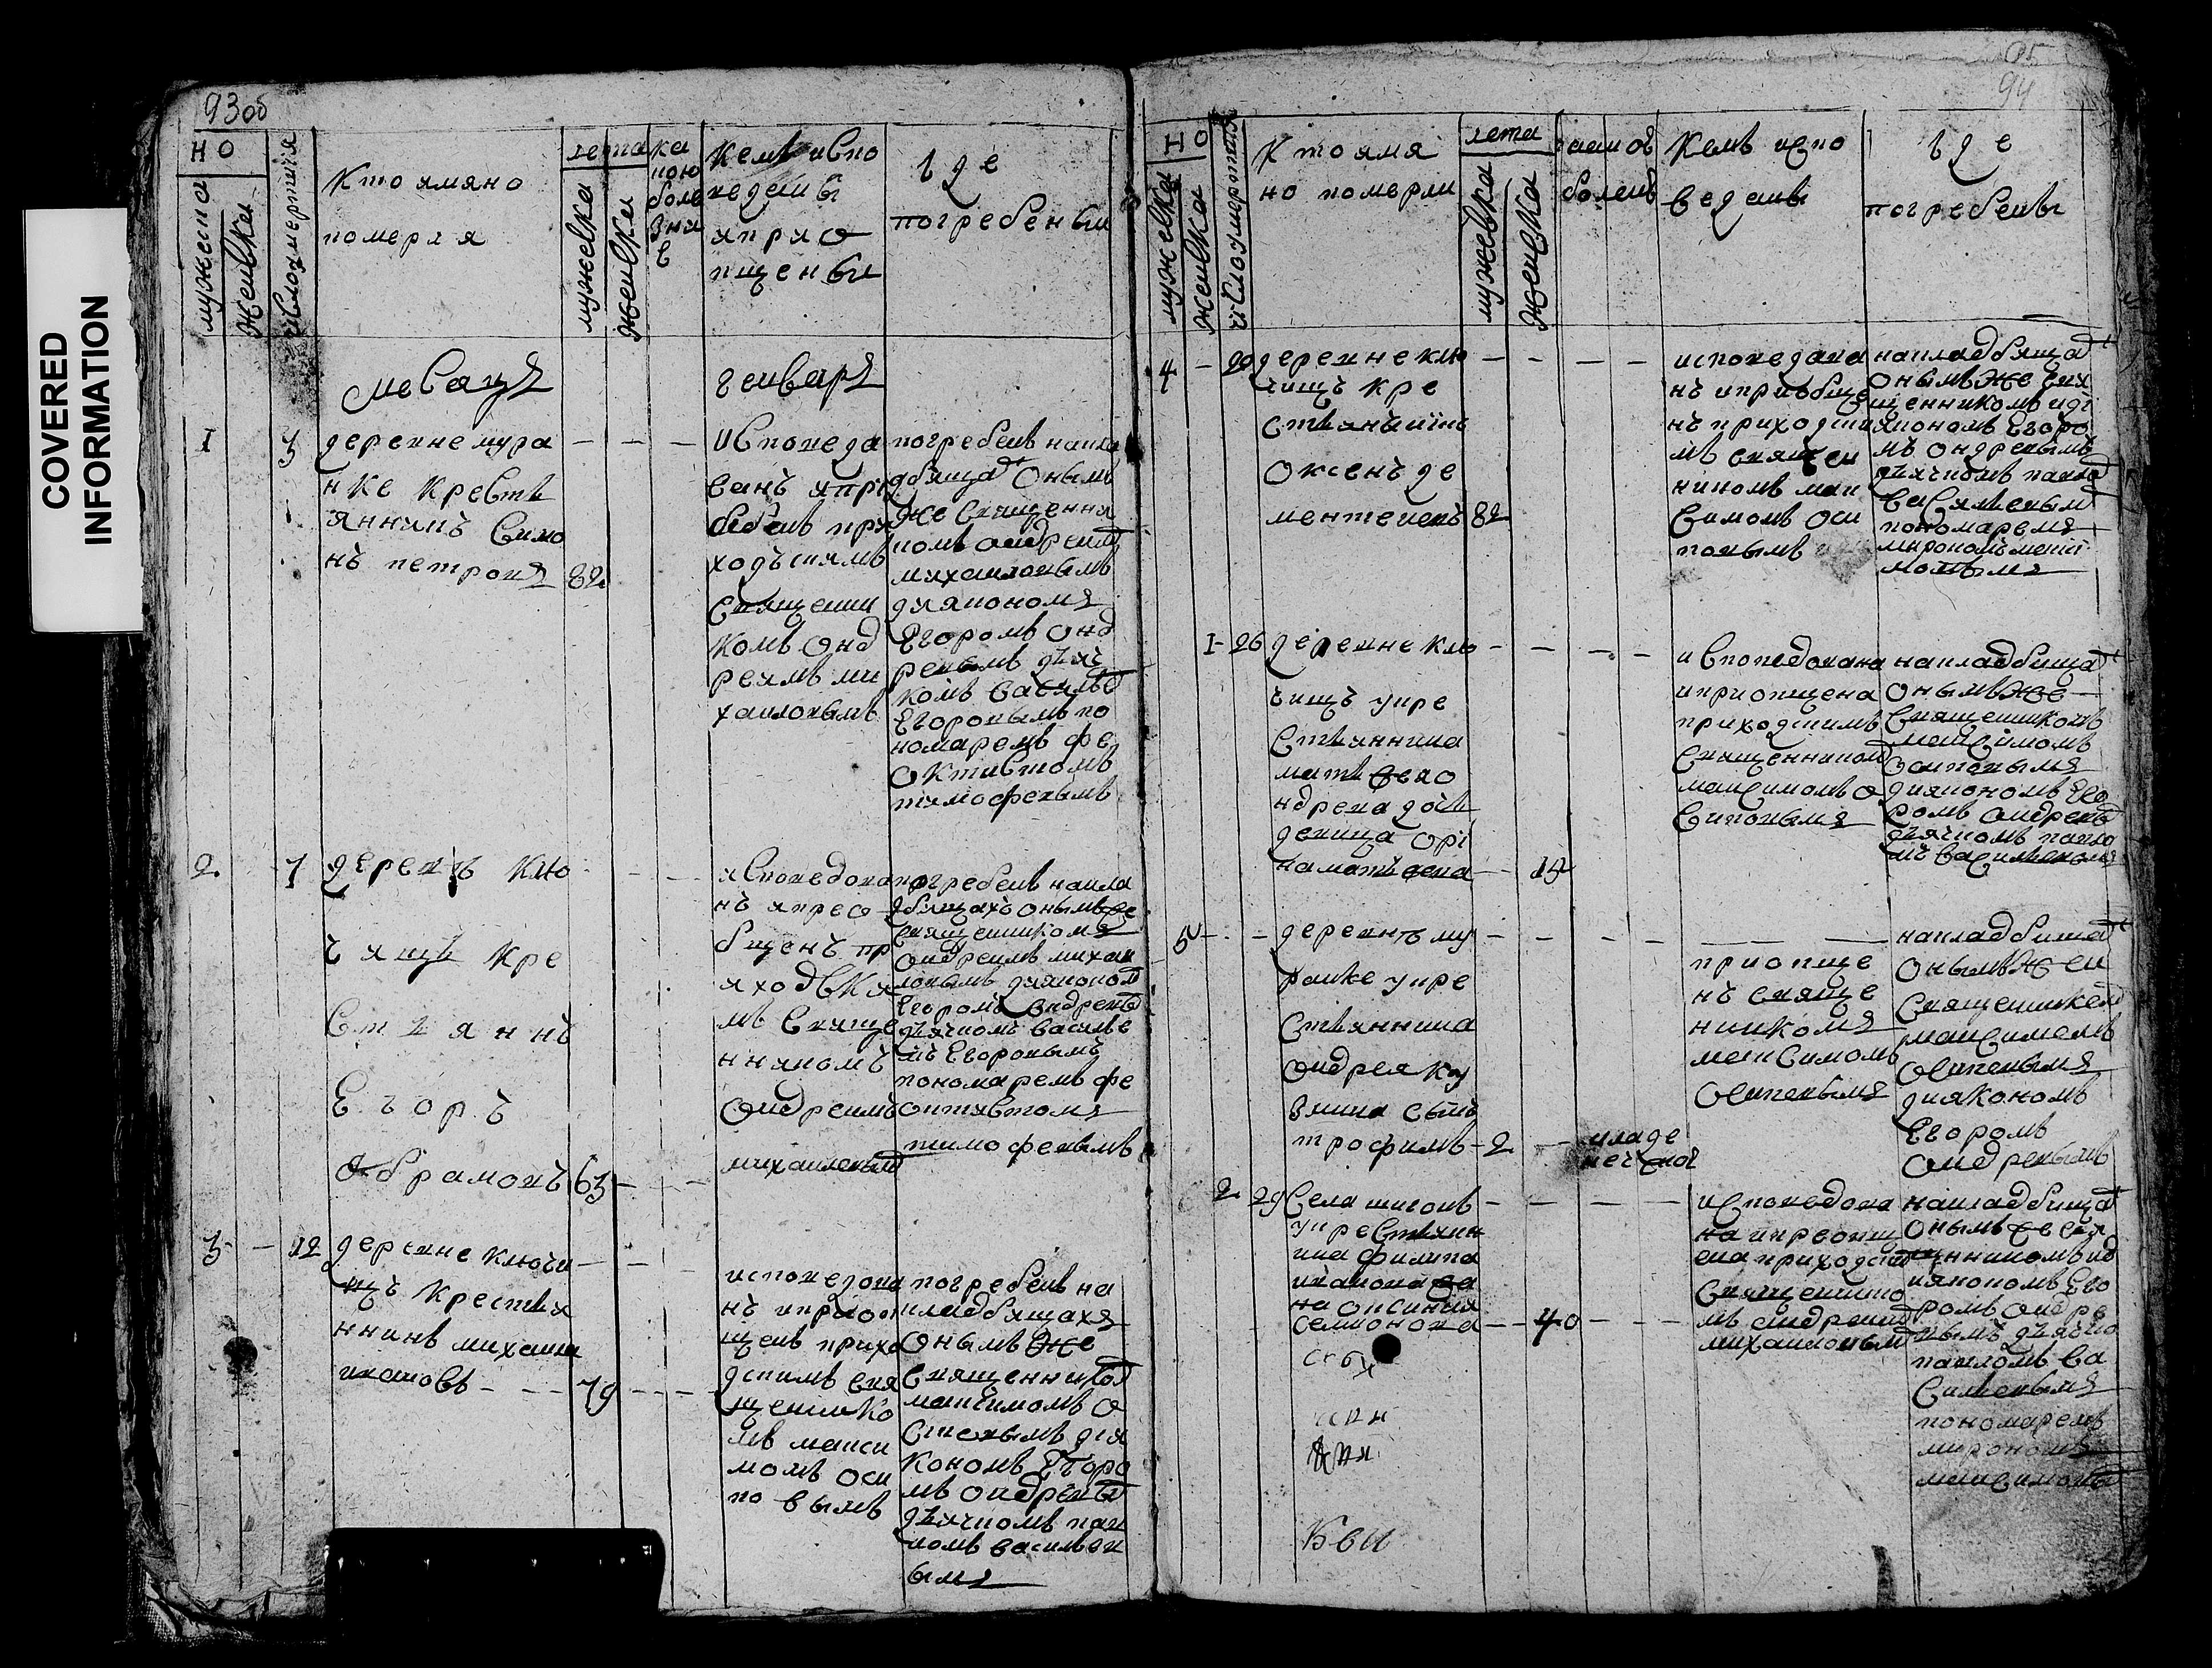 COVERED
INFORMATION
93об
НО
мужеска
женска
число смертия
Кто имяно
померли
лета
мужеска
женска
ка
кою
боле
зни
ю
Кемъ испо
ведены
и прио
пщены
где
погребены
месяцъ генварь
1
3
деревне мура
нке крестъ
янинъ Симо
нъ петровъ 82
Исповеда
ванъ и при
общенъ при
ходъскимъ
Священни
комъ Онд
реямъ ми
хаиловымъ
погребенъ на кла
дбищахъ Онымъ
же Священни
комъ Андреямъ
михаиловымъ
дияконом
Егоромъ Онд
реевымъ дьяч
комъ василье
Егоровымъ по
номаремъ фе
октистомъ
тимофеевымъ
2
7
деревнъ клю
чищъ кре
стьяннъ
Егоръ
Абрамовъ 63
исповедова
нъ и прео
бщенъ пр
иходски
мъ Свяще
нникомъ
Андреимъ
михаиловым
погребенъ на кла
дбищахъ онымже
священником
Андреимъ михаи
ловымъ дияконом
Егоромъ Андреевы
дьячкомъ василье
мъ Егоровымъ
пономаремъ фе
октистом
тимофеевымъ
3
12
деревне ключи
щъ крестья
ннинъ михаила
ивановъ 79
исповедова
нъ и приоп
щенъ прихо
дскимъ свя
щеннико
мъ макси
момъ оси
повымъ
погребенъ на
кладбищахъ
Онымъ же
Священником
максимомъ О
Сиповымъ дия
кономъ Егоро
мъ Андреевы
дьячкомъ пав
ломъ васильев
ым
95
94
НО
мужеска
женска
число смертия
Кто имя
но померли
лета
мужеска
женска
какою
болезнь
Кемъ испо
ведены
где
погребены
4
20
деревне клю
чищъ кре
стьянинъ
Оксенъ де
ментевевъ 82
исповедова
нъ и приобще
нъ приходски
мъ священ
никомъ мак
симомъ Оси
повымъ
на кладбищах
онымъ же свя
щенникомъ и ді
якономъ Егоро
мъ ондреевымъ
дьячкомъ павло
васильевым
пономарем
мирономъ макси
мовым
1
26
деревне клю
чищъ укре
стьяннина
матвея о
ндреева дочь
девица орі
на матвеева 15
исповедована
и приопщена
приходскимъ
священником
максимомъ о
сиповым
на кладбищах
онымъ же
Священникомъ
максимомъ
Осиповым
дияконом Его
ромъ Андреевы
дьячкомъ павло
мъ васильевым
5
деревнъ му
ранке укре
стьяннина
Андрея ку
змина сынъ
трофимъ 2
младе
нечской
приопще
нъ священ
никомъ
максимомъ
Осиповым
на кладбищах
онымъ же и
Священником
максимомъ
Осиповым
дияконом
Егоромъ
Андреевымъ
2
29
Села шигонъ
укрестьянн
ина филипа
иванова же
на оксинья
семионова 40
исповедова
на и преопщ
ена приходски
священнико
мъ андреим
михаиловым
на кладбищах
онымъ же свя
щенникомъ и д
ияконом Его
ромъ Андре
вымъ дьячко
павломъ ва
сильевым
пономаремъ
мирономъ
максимовы